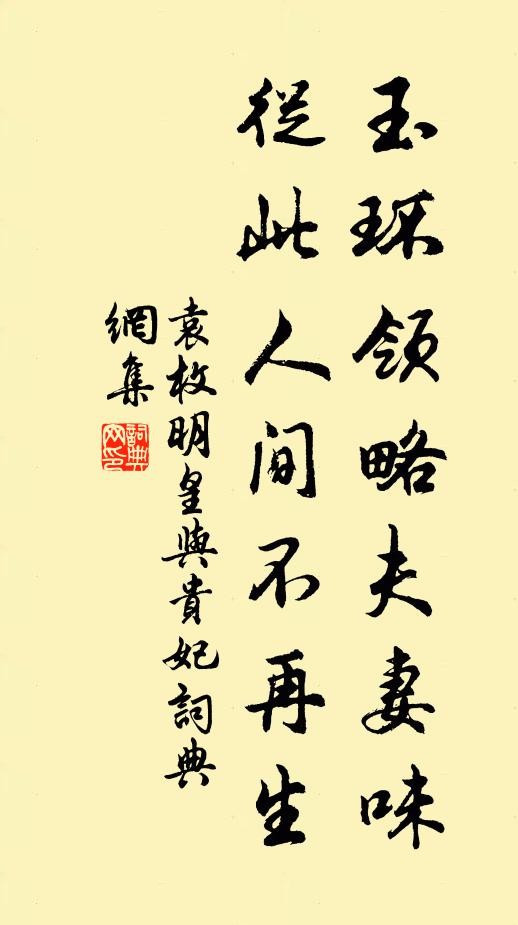 玉環領略夫妻味
從此人間不再生
袁枚明皇與貴妃詞典
網集
詞典網印